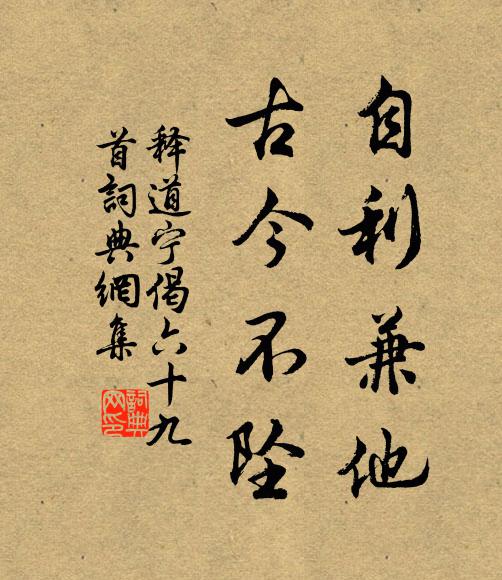 自利兼他
古今不坠
释道宁偈六十九
首词典網集
詞典网印